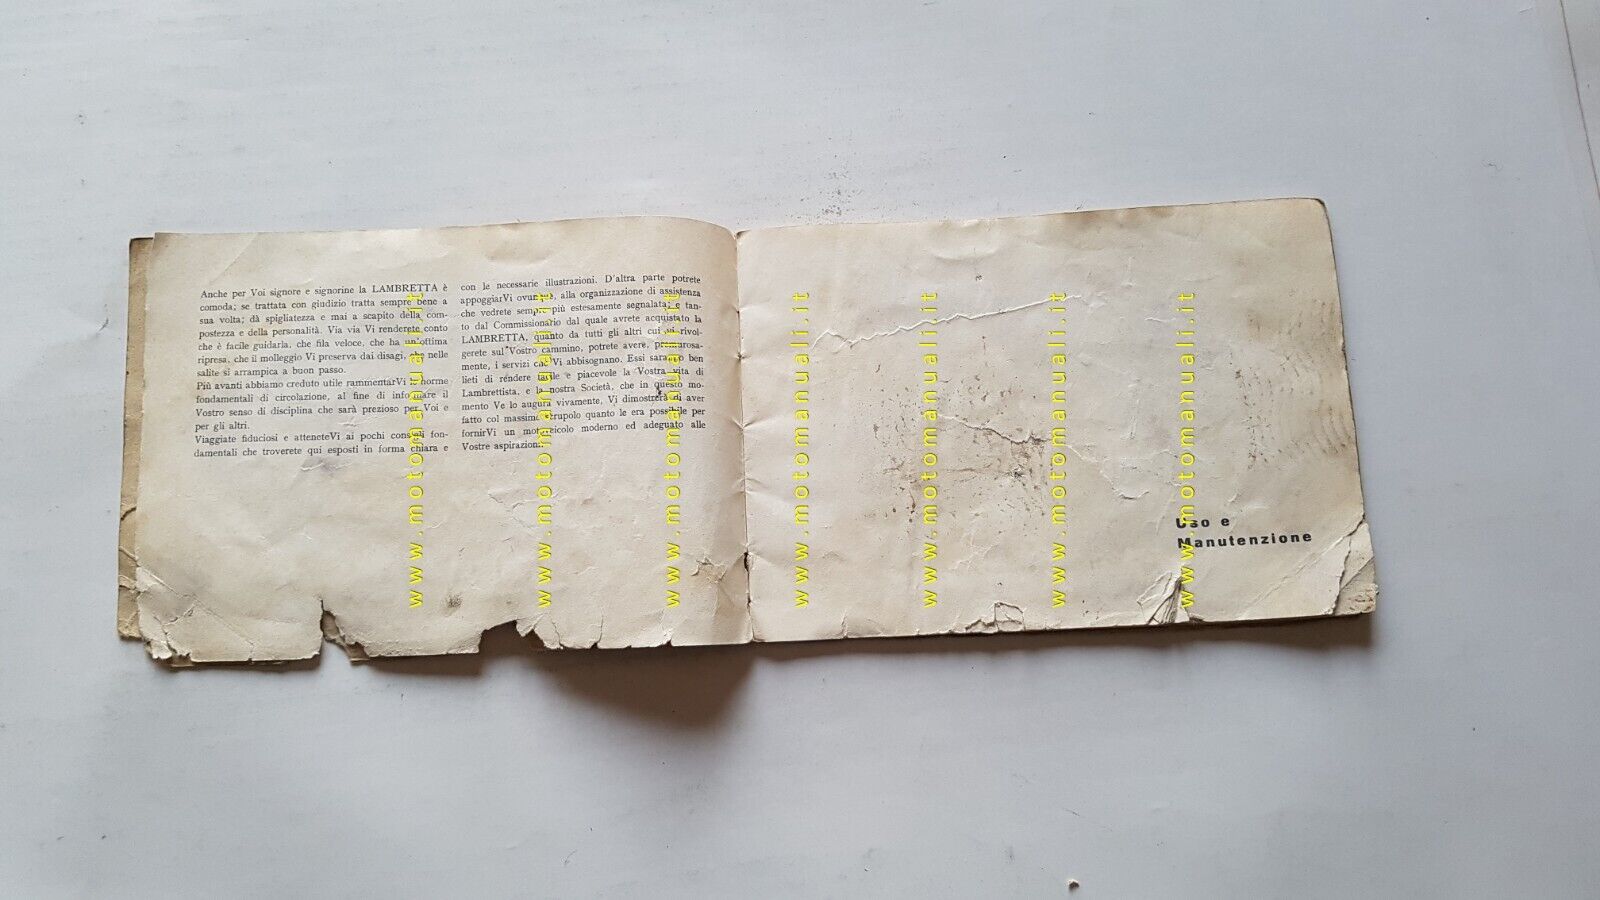 Anche per Voi signore e signorine la LAMBRETTA è
comoda; se trattata con giudizio tratta sempre bene a
sua volta; dà spigliatezza e mai a scapito della com-
postezza e della personalità. Via via Vi renderete conto
che è facile guidarla, che fila veloce, che ha un'ottima
ripresa, che il molleggio Vi preserva dai disagi, che nelle
salite si arrampica a buon passo.
Più avanti abbiamo creduto utile rammentarVi le norme
fondamentali di circolazione, al fine di informare il
Vostro senso di disciplina che sarà prezioso per Voi e
per gli altri.
Viaggiate fiduciosi e atteneteVi ai pochi consigli fon-
damentali che troverete qui esposti in forma chiara e
con le necessarie illustrazioni. D'altra parte potrete
appoggiarVi ovunque, alla organizzazione di assistenza
che vedrete sempre più estesamente segnalata; e tan-
to dal Commissionario dal quale avrete acquistato la
LAMBRETTA, quanto da tutti gli altri cui vi rivol-
gerete sul Vostro cammino, potrete avere, premurosa-
mente, i servizi che Vi abbisognano. Essi saranno ben
lieti di rendere facile e piacevole la Vostra vita di
Lambrettista, e la nostra Società, che in questo mo-
mento Ve lo augura vivamente, Vi dimostrerà di aver
fatto col massimo scrupolo quanto le era possibile per
fornirVi un motoveicolo moderno ed adeguato alle
Vostre aspirazioni.
Uso e
Manutenzione
www.motomanuali.it
www.motomanuali.it
www.motomanuali.it
www.motomanuali.it
www.motomanuali.it
www.motomanuali.it
www.motomanuali.it